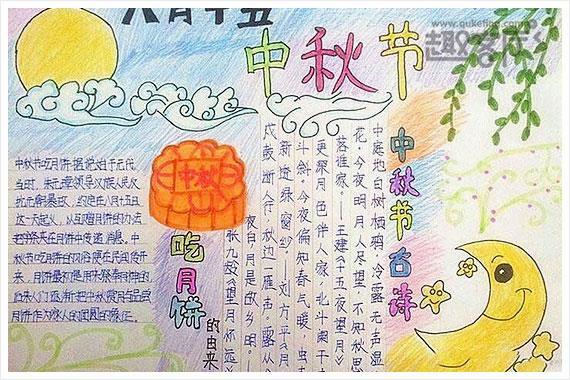 八月十五
中秋节
www.qukefing.com
趣客厅
中秋节吃月饼据说始于元代
当时，朱元璋领导汉族人民
抗元朝暴政，约定在八月十五日
这一天起义，以互赠月饼的办法
把字条夹在月饼中传递消息。中
秋节吃月饼的习俗便在民间传开
来。月饼最初是用来祭奉月神的
后来人们逐渐把中秋赏月与品尝
月饼作为家人的团圆的象征。
中秋
吃月饼
的由来
中秋节古诗
中庭地白树栖鸦，冷露无声湿
花。今夜明月人尽望，不知秋思
落谁家。——王建《十五夜望月》
更深月色半人家，北斗阑干
斗斜。今夜偏知春气暖，虫
新透绿窗纱。——刘方平《月
戍鼓断人行，秋边一雁声。露从
夜白，月是故乡明。
张九龄《望月怀远》